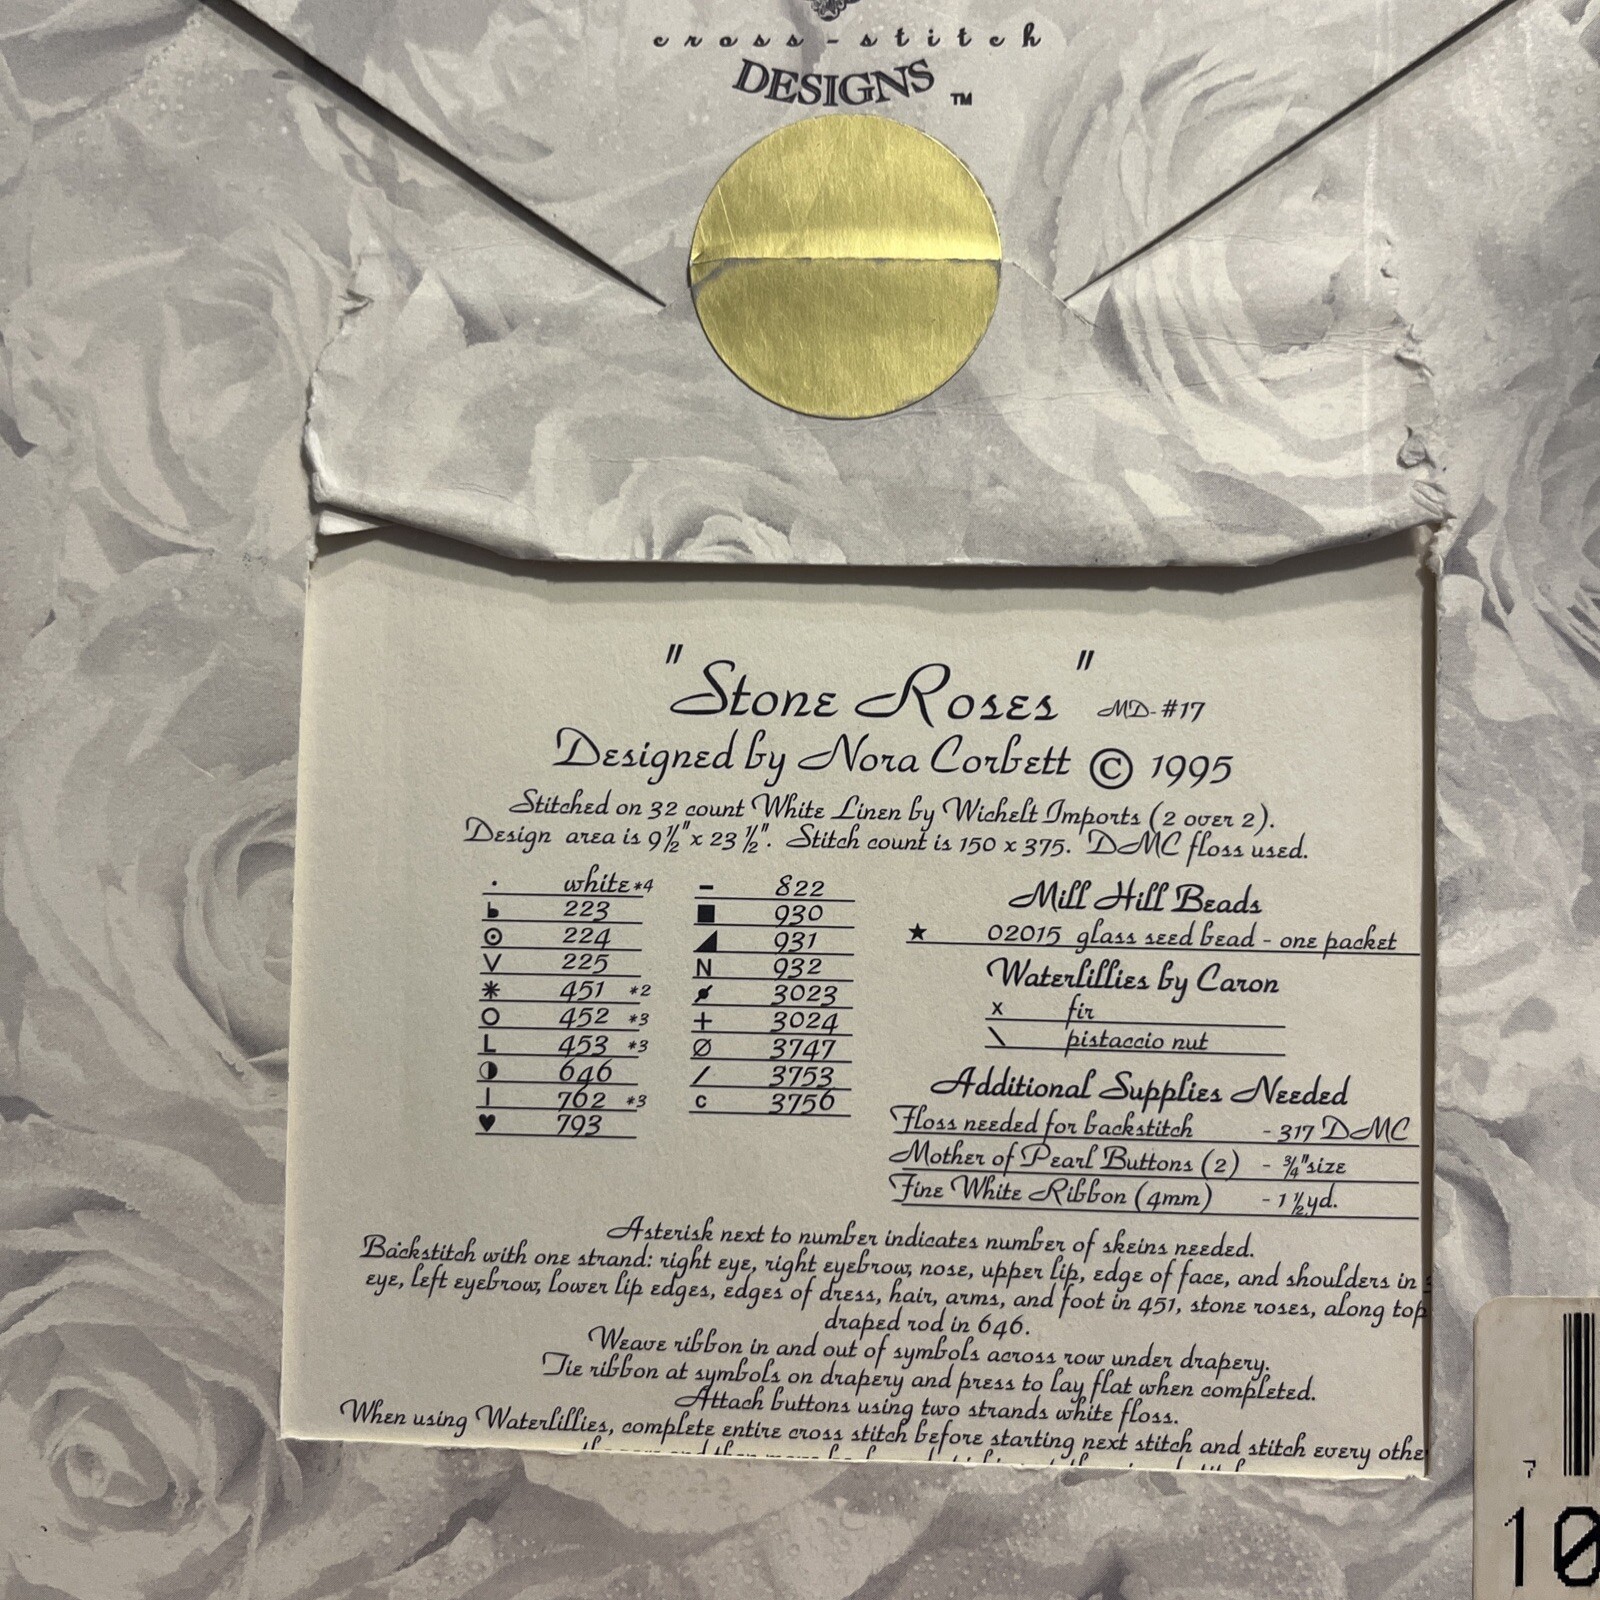 cross-stitch
DESIGNS ™
"Stone Roses" MD-#17
Designed by Nora Corbett © 1995
Stitched on 32 count White Linen by Wichelt Imports (2 over 2).
Design area is 9½" x 23½". Stitch count is 150 x 375. DMC floss used.
· white *4
223
⊙ 224
V 225
✳ 451 *2
O 452 *3
L 453 *3
◑ 646
I 762 *3
♥ 793
– 822
■ 930
◢ 931
N 932
3023
+ 3024
Ø 3747
/ 3753
c 3756
Mill Hill Beads
★ 02015 glass seed bead - one packet
Waterlillies by Caron
x fir
\ pistaccio nut
Additional Supplies Needed
Floss needed for backstitch - 317 DMC
Mother of Pearl Buttons (2) - ¾" size
Fine White Ribbon (4mm) - 1½ yd.
Asterisk next to number indicates number of skeins needed.
Backstitch with one strand: right eye, right eyebrow, nose, upper lip, edge of face, and shoulders in
eye, left eyebrow, lower lip edges, edges of dress, hair, arms, and foot in 451, stone roses, along top
draped rod in 646.
Weave ribbon in and out of symbols across row under drapery.
Tie ribbon at symbols on drapery and press to lay flat when completed.
Attach buttons using two strands white floss.
When using Waterlillies, complete entire cross stitch before starting next stitch and stitch every othe
7
10